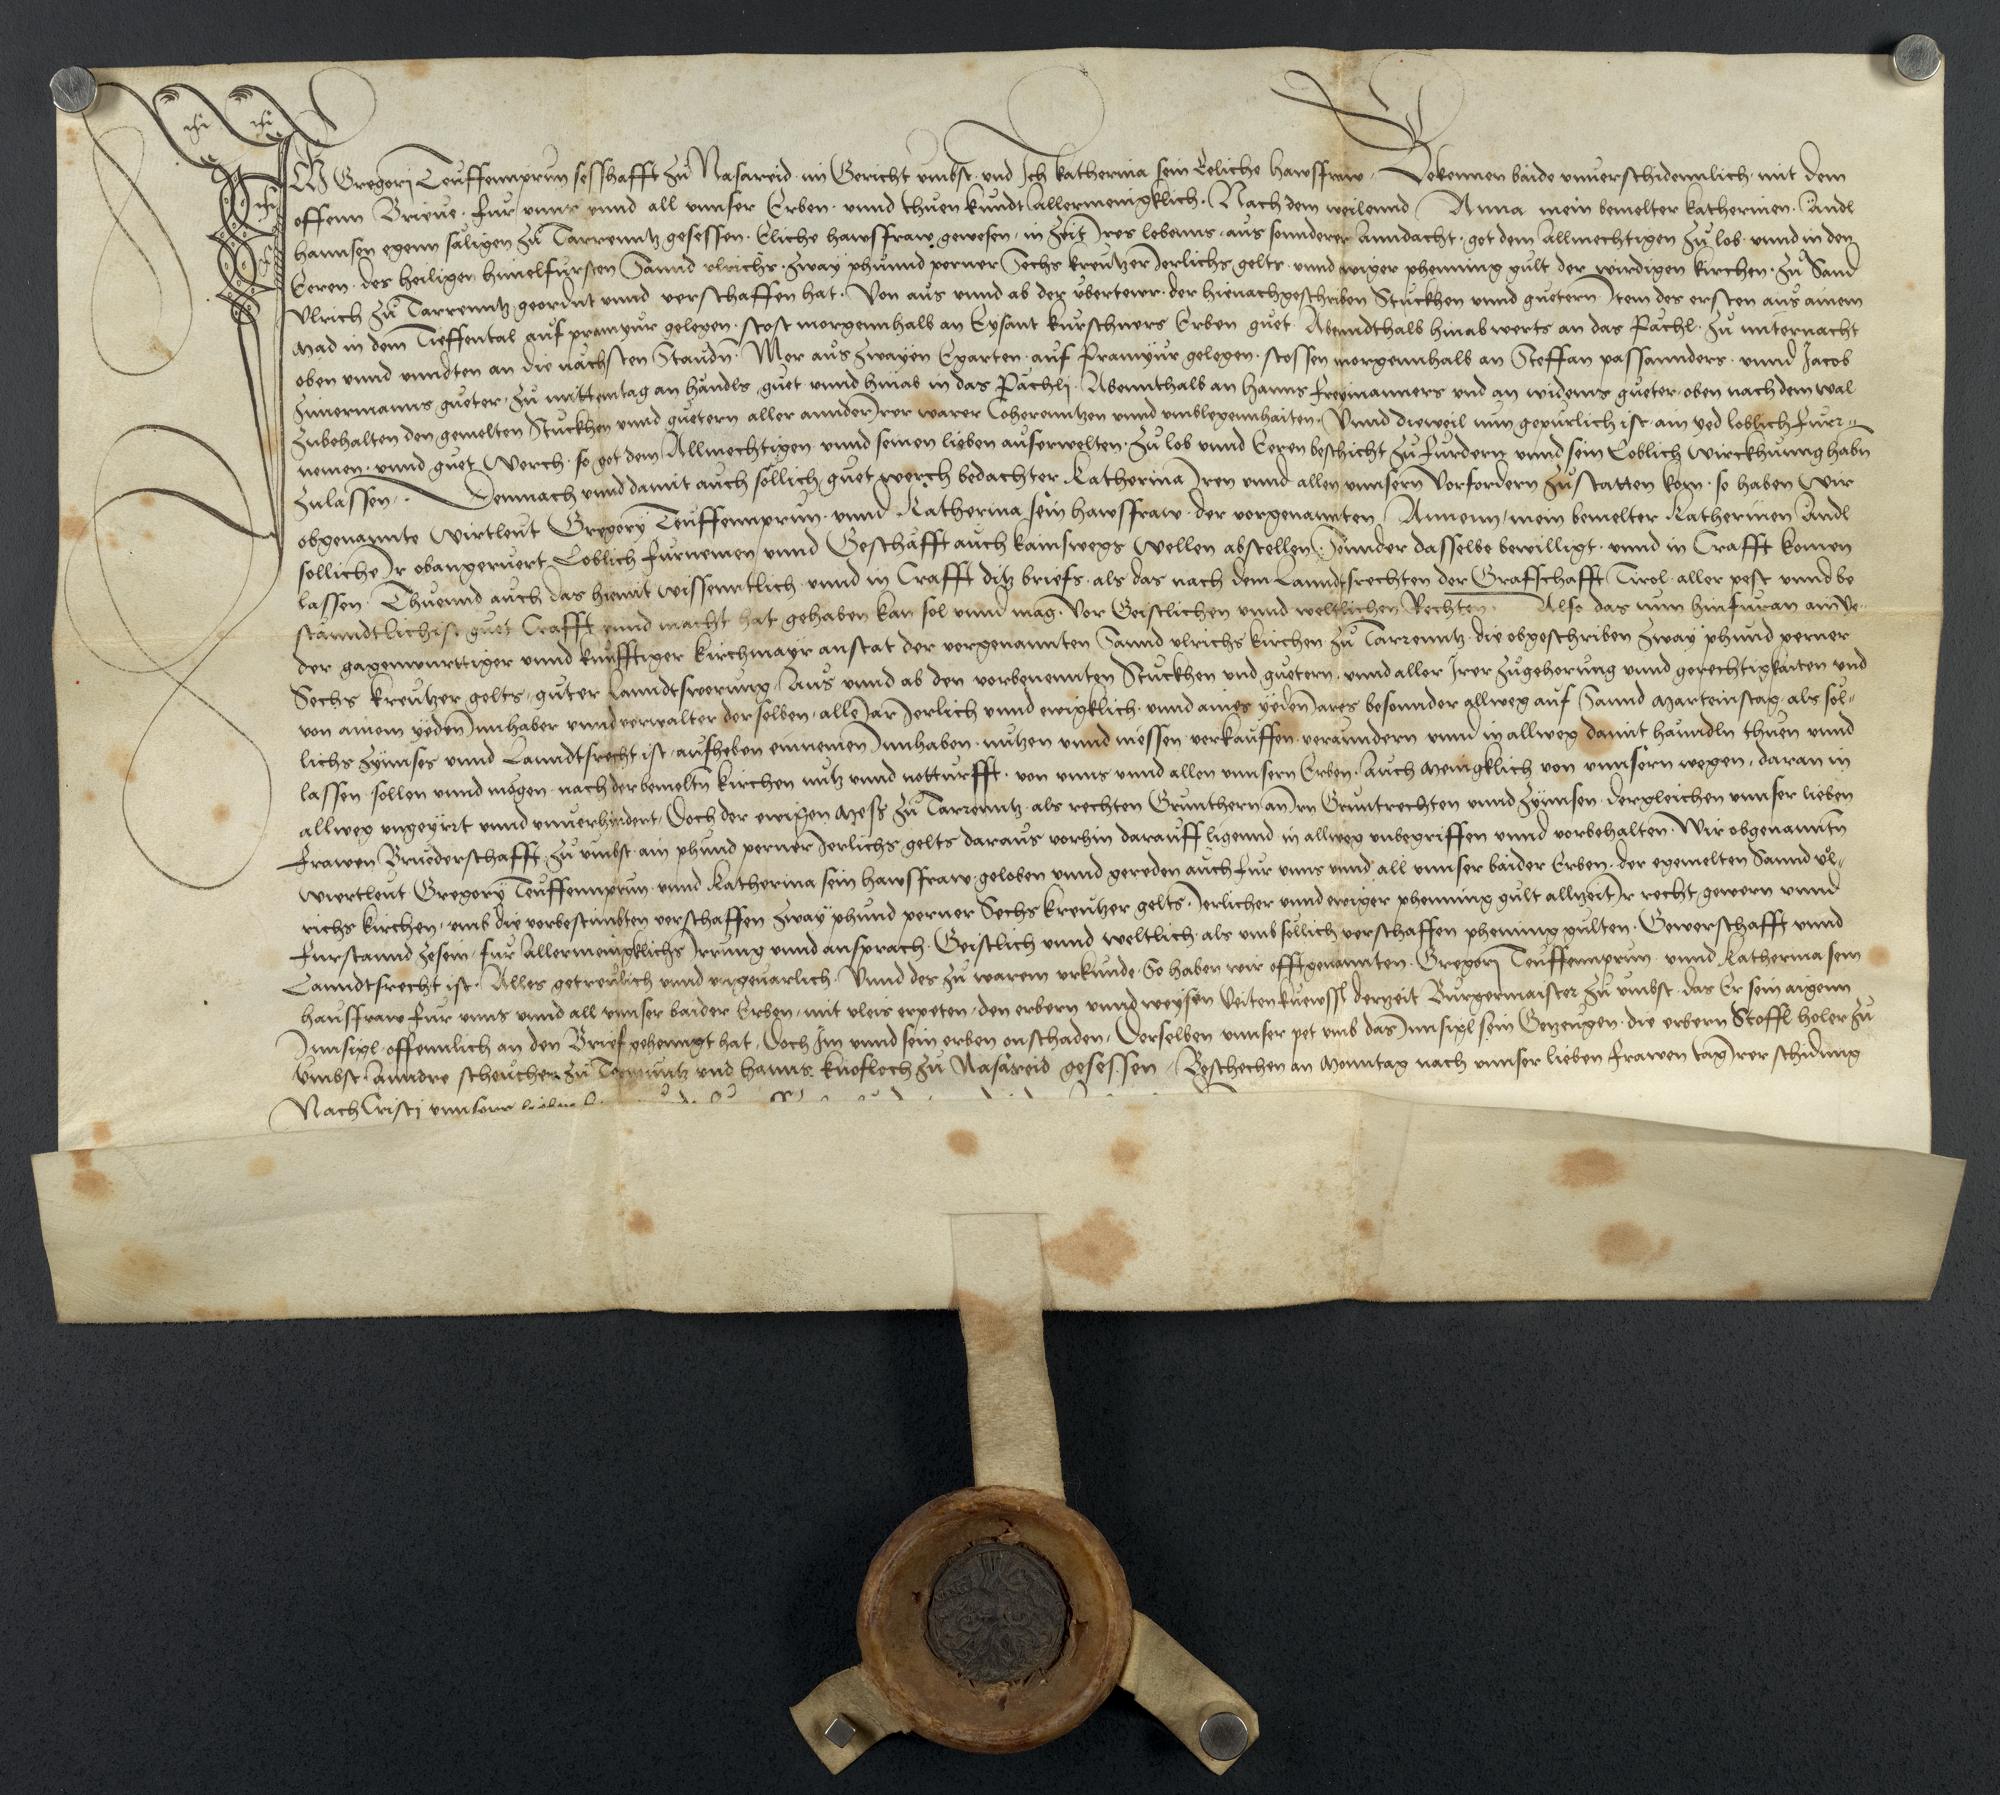 ICH Gregori Teuffennprun sesshafft zů Nasareid im Gericht ymbst und Jch katherina sein Eeliche hawsfraw Bekennen baide unverschidennlich mit dem
offenn Brieue fur unns unnd all unnser Erben unnd thuen kundt allermenigklich Nach dem weilennd Anna mein bemelter katherinen Åndl
hannsen egenn såligen zů Tarrenntz gesessen Eliche hawsfraw gewesen in Zeit Jres lebenns aus sonnderer anndacht got dem allmechtigen zů lob unnd in den
Eeren des heiligen himelfursten Sannd ulrichs zway phunnd perner Sechs kreutzer Jerlichs gelts unnd ewiger phenning gult der wirdigen kirchen zů Sand
Ulrich zů Tarrenntz geordnt unnd verschaffen hat Von aus unnd ab der ubertewr der hienachgeschriben Stuckhen unnd guetern Item des ersten aus ainem
mad in dem Tieffental auf pramyur gelegen stost morgennhalb an Eysant kurschners Erben guet Abenndthalb hinabwerts an das Påchl zů mitternacht
oben unnd unndten an die nåchsten Staudn Mer aus zwayen Egarten auf Pramyur gelegen stossen morgennhalb an Steffan passannders unnd Jacob
Zimermanns gueter zů mittemtag an håndls guet unnd hinab in das Påchli Abennthalb an hanns freymanners und an widems gueter oben nach dem wal
Zubehalten den gemelten Stuckhen unnd guetern aller annder Irer warer Coherenntzen unnd umblegennhaiten Unnd dieweil nun gepurlich ist ain yed loblich furr
nemen unnd guet Werch so got dem Allmechtigen unnd seinen lieben auserwelten zů lob unnd Eeren beschicht zů furdern unnd sein Loblich wirckhunng habn
zulassen Demnach unnd damit auch sollich guet werch bedachter Katherina Iren unnd allen unnsern Vorfordern zů statten kom so haben wir
obgenannte wirtleut Gregory Teuffennprun unnd Katherina sein hawsfraw der vorgenannten Annenn mein bemelter Katherinen Åndl
solliche Ir obangeruert Loblich furnemen unnd Geschåfft auch kainswegs wellen abstellen Sonnder dasselbe bewilligt unnd in Crafft komen
lassen Thuennd auch das hiemit wissenntlich unnd in Crafft ditz briefs als das nach dem Lanndtsrechten der Grafschafft Tirol aller pest unnd be
stånndtlichist guet Crafft unnd macht hat gehaben kan sol unnd mag vor Geistlichen unnd weltlichen Rechten Also das nun hinfuran ain ye
der gagenwurttiger unnd kunfftiger kirchmayr anstat der vorgenannten Sannd ulrichs kirchen zů Tarrenntz die obgeschriben zway phund perner
Sechs kreutzer gelts guter lanndtswerung Aus unnd ab den vorbenennten Stuckhen und guetern unnd aller Irer zugehorung unnd gerechtigkaiten und
von ainem yeden Innhaber unnd verwalter derselben alle Jar Jerlich unnd ewigklich unnd aines yeden Jares besonnder allweg auf Sannd Marteinstag als sol
lichs zynnses unnd Lanndtsrecht ist aufheben einnemen Innhaben nutzen unnd niessen verkauffen verånndern unnd in allweg damit hånndln thuen unnd
lassen sollen unnd mogen nach der bemeltn kirchen nutz unnd notturfft von unns unnd allen unnsern Erben Auch menigklich von unnsern wegen daran in
allweg ungeyrrt unnd unverhindert Doch der ewigen Mess zů Tarrenntz als rechten Grunthern an Irn Gruntrechten unnd zynnsen dergleichen unnser lieben
Frawen Bruederschafft zů ymbst ain phund perner Jerlichs gelts daraus vorhin darauff ligennd in allweg unbegriffen unnd vorbehalten Wir obgenanntn
wirtleut Gregory Teuffennprun unnd Katherina sein hawsfraw geloben unnd gereden auch fur unns unnd all unnser baider Erben der egemelten Sannd Ul
richs kirchen umb die vorbestimbten verschaffen zway phund perner Sechs kreutzer gelts Jerlicher unnd ewiger phenning gult allzeit Ir recht gewern unnd
Furstannd zesein fur allermenigklichs Irrung unnd ansprach Geistlich unnd weltlich als umb sollich verschaffen phenning gulten Gewerschafft unnd
Lanndtsrecht ist Alles getreulich unnd ungevarlich Unnd des zů warem urkunde So haben wir offtgenannten Gregori Teuffennprun unnd Katherina sein
hausfraw fur unns unnd all unnser baider Erben mit vleis erpeten den erbern unnd weysen Veiten derzeit Burgermaister zů ymbst das Er sein aigenn
Innsigl offennlich an den Brief gehenngt hat Doch Im unnd sein erben on schaden Derselben unnser pet umb das Innsigl sein Getzeugen die erbern Stoffl holer zů
ymbst Anndre scheucher zů Tarrenntz und hanns knofloch zů Nasareid gesessen Beschechen an Monntag nach unnser lieben frawen tag Irer schidung
Nach Cristi unnsers lieben